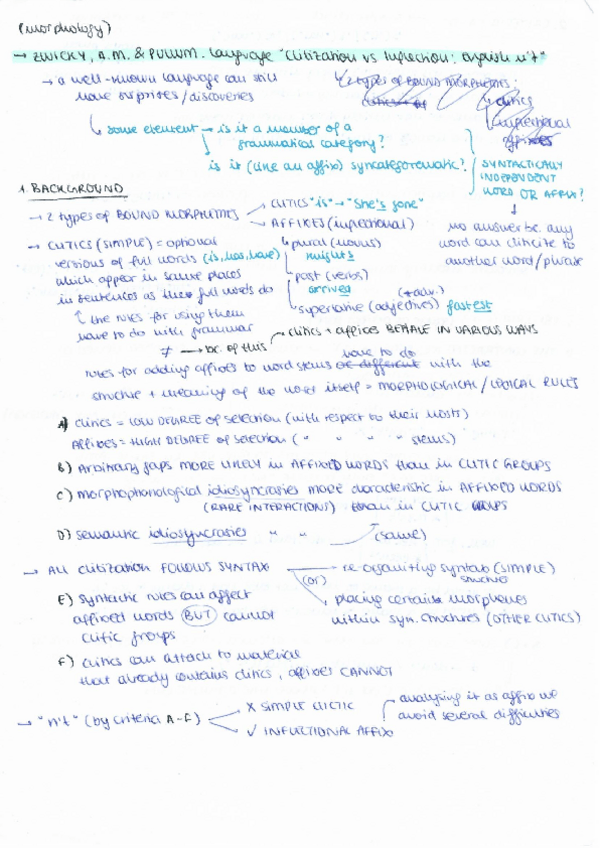 (morphology)
→ ZWICKY, A.M. & PULLUM. Language "Cliticization vs Inflection: English n't"
→ a well-known language can still
have surprises/discoveries
2 types of BOUND MORPHEMES:
clitics
inflectional
affixes
some element → is it a member of a
grammatical category?
is it (like an affix) syncategorematic?
SYNTACTICALLY
INDEPENDENT
WORD OR AFFIX?
no answer bc. any
word can cliticize to
another word/phrase
1. BACKGROUND
→ 2 types of BOUND MORPHEMES
CLITICS "is" → "She's gone"
AFFIXES (inflectional)
plural (nouns)
nights
past (verbs)
arrived
(+adv.)
superlative (adjectives) fastest
→ CLITICS (SIMPLE) = optional
versions of full words (is, has, have)
which appear in same places
in sentences as their full words do
↑ the rules for using them
have to do with grammar
≠ → bc. of this
clitics + affixes BEHAVE IN VARIOUS WAYS
rules for adding affixes to word stems have to do with the
structure + meaning of the word itself = MORPHOLOGICAL/LEXICAL RULES
A) clitics = LOW DEGREE of selection (with respect to their hosts)
Affixes = HIGH DEGREE of selection ( " " " " stems)
B) Arbitrary gaps MORE LIKELY in AFFIXED WORDS than in CLITIC GROUPS
C) morphophonological idiosyncrasies more characteristic in AFFIXED WORDS
(RARE INTERACTIONS) than in CLITIC GROUPS
D) semantic idiosyncrasies " " (same)
→ ALL cliticization FOLLOWS SYNTAX
re-organizing syntax (SIMPLE)
structure
(or)
placing certain morphemes
within syn. structures (OTHER CLITICS)
E) Syntactic rules can affect
affixed words BUT cannot
clitic groups
F) clitics can attach to material
that already contains clitics, affixes CANNOT
→ "n't" (by criteria A-F)
X SIMPLE CLITIC
✓ INFLECTIONAL AFFIX
analysing it as affix we
avoid several difficulties